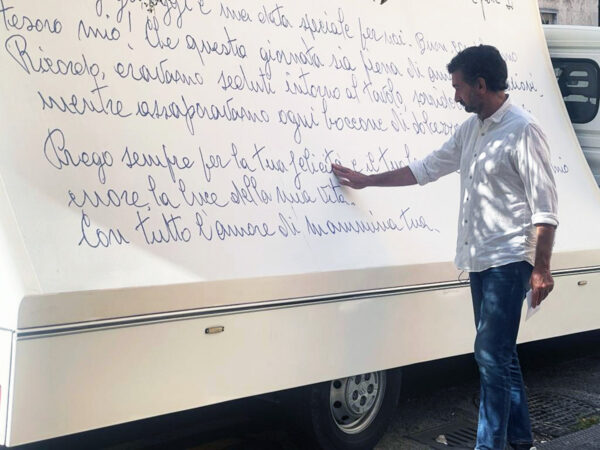 oggi è una data speciale per noi. Buon
tesoro mio! Che questa giornata sia piena di
Ricordo, eravamo seduti intorno al tavolo,
mentre assaporavamo ogni boccone di
Prego sempre per la tua felicità e il tuo
cuore, la luce della mia vita.
Con tutto l'amore di mammina tua.